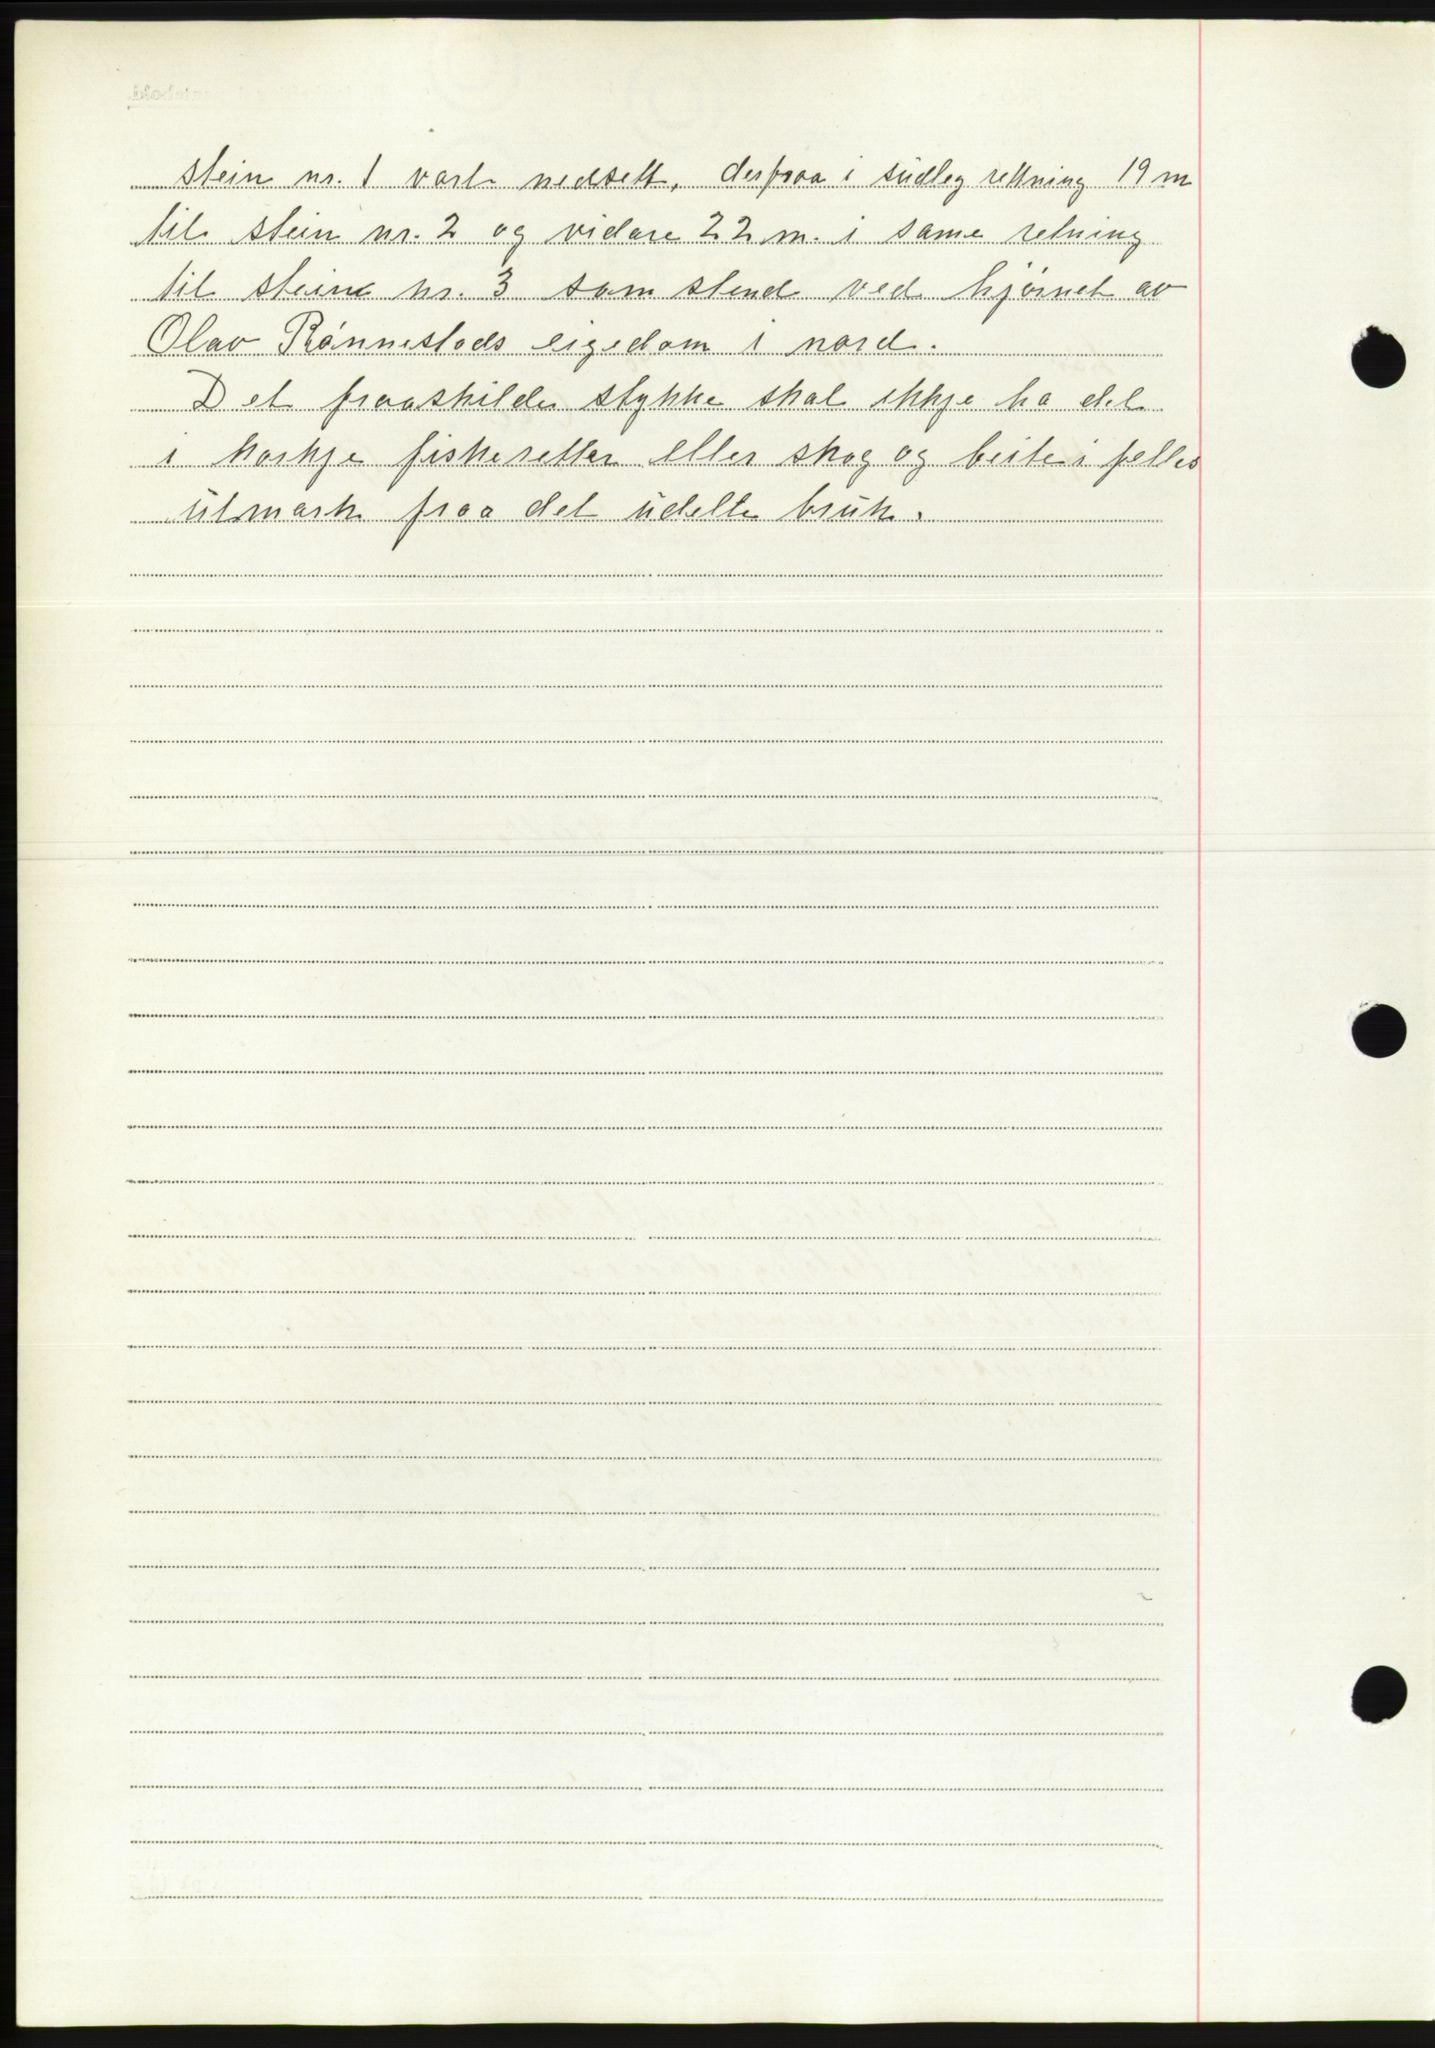 stein nr. 1 vart nedsett, derfraa i sudleg rettning 19 m
til stein nr. 2 og vidare 22 m. i same retning
til stein nr. 3 som stend ved hjørnet av
Olav Rønnestads eigedom i nord.
Det fraaskilde stykke skal ikkje ha del
i korkje fiskeretter eller skog og beite i felles
utmark fraa det udelte bruk.